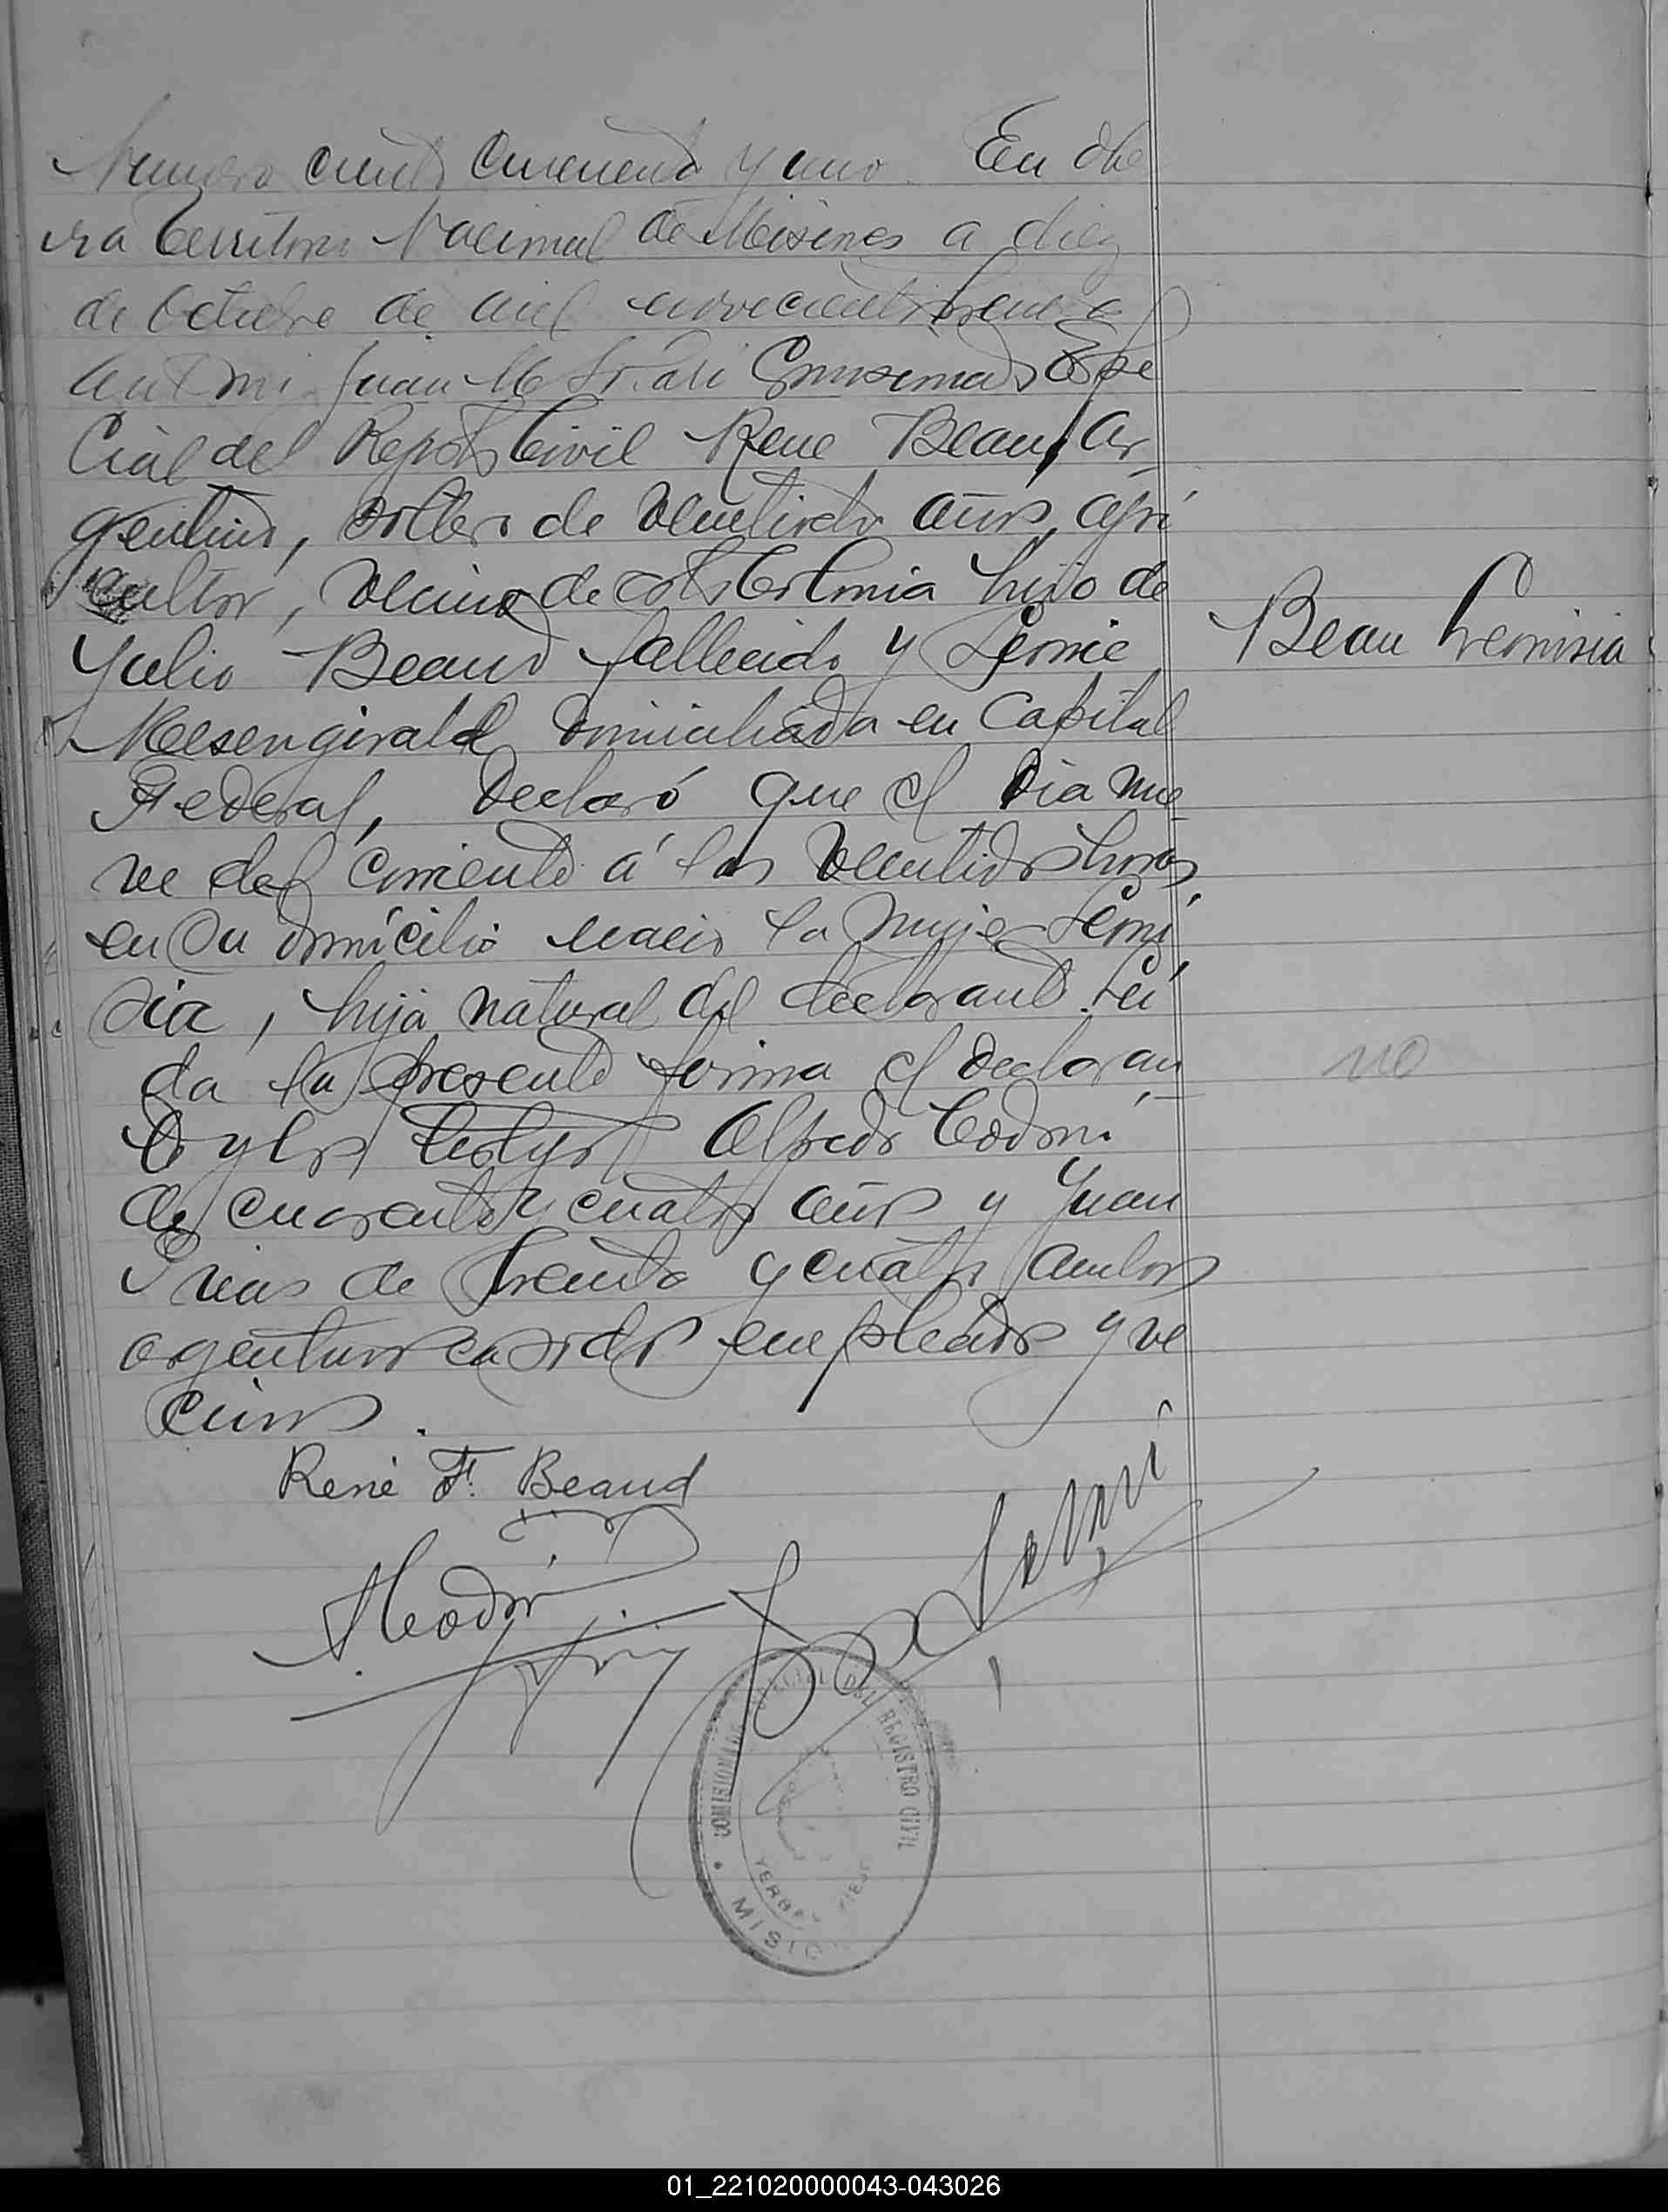 Numero ciento cincuenta y uno. En Obe
ra Territorio Nacional de Misiones a diez
de Octubre de mil novecientos treinta
ante mi Juan M Comisionado Espe
cial del Registro Civil Rene Beaud, ar-
gentino, soltero de veintidos años, agri
cultor, vecino de esta Colonia hijo de
Yulio Beaud fallecido y Leonie
Mesengirald domiciliada en Capital
Federal, declaró que el dia nue-
ve del corriente á las veintidos horas
en su domicilio nacio la mujer
sia, hija natural del declarante. Lei
da la presente forma el declaran-
te y los testigos Alfredo Codoni
de cuarenta y cuatro años y Juan
de treinta y cuatro ambos
argentinos casados empleados y ve
cinos.
Beau
no
René F. Beaud
COMISIONADO ESPECIAL DEL REGISTRO CIVIL
YERBAL VIEJO
MISIO
01_221020000043-043026